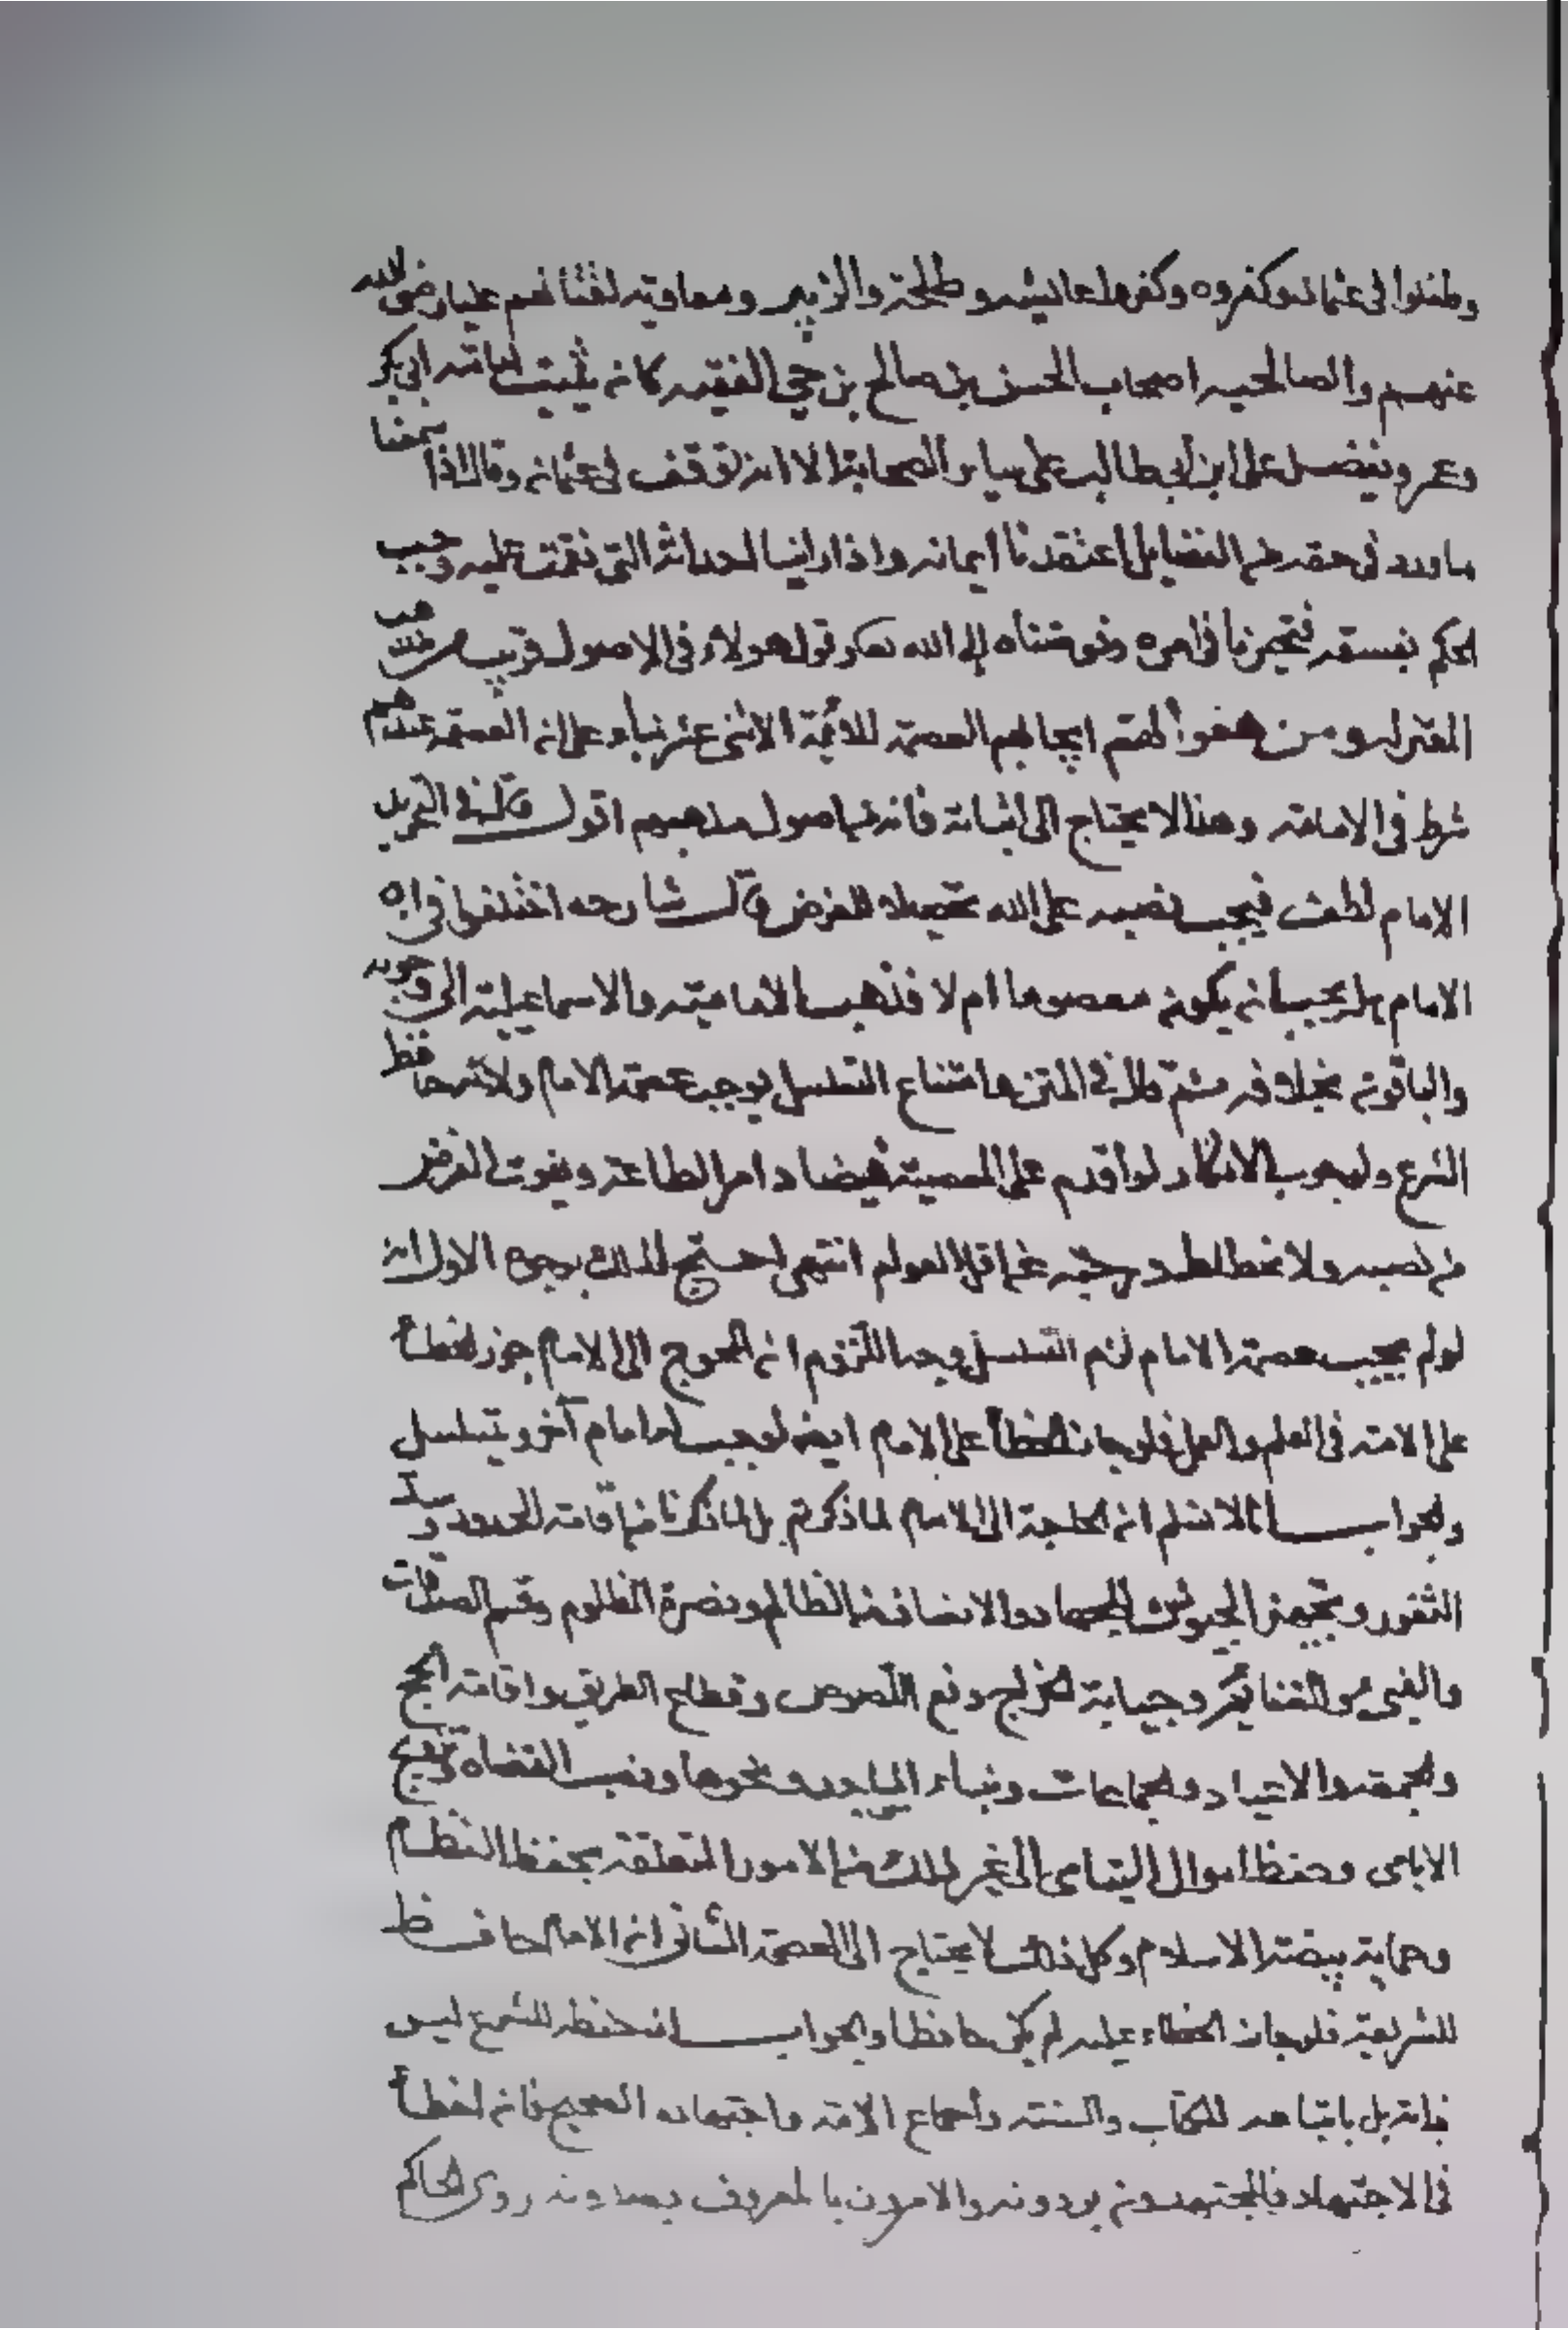 وطعنوا في عثمان وكفروه وكفروا عايشه وطلحة والزبير ومعاوية لقتالهم عليا رضي الله
عنهم والصالحيه اصحاب الحسن بن صالح بن حي الفقيه كان يثبت امامة ابي بكر
وعمر ويفضل علي ابن ابي طالب على ساير الصحابة الا انه توقف في عثمان وقال اذا سمعنا
ما ورد في حقه من الفضايل اعتقدنا ايمانه واذا راينا احداثه التي نقمت عليه وجب
الحكم بفسقه فتحيرنا في امره وفوضناه الى الله وقول هولاء في الاصول قريب من مذهب
المعتزله ومن هفواتهم ايجابهم العصمة للائمة الاثنى عشر بناء على ان العصمة عندهم
شرط في الامامة وهذا لا يحتاج الى اثباته فانه من اصول مذهبهم اقول قال في التجريد
الامام لطف فيجب نصبه على الله تحصيلا للغرض قال شارحه اختلفوا في ان
الامام هل يجب ان يكون معصوما ام لا فذهب الامامية والاسماعيلية الى وجوبه
والباقون بخلافه ثم قال في المتن وامتناع التسلسل يوجب عصمة الامام ولانه حافظ
الشرع ولوجوب الانكار لو اقدم على المعصية فيضاد امر الطاعة ويفوت الغرض
من نصبه ولانحطاط درجته عن اقل العوام انتهى احتج لذلك بوجوه الاول انه
لو لم يجب عصمة الامام لزم التسلسل وجه اللزوم ان المحوج الى الامام جواز الخطأ
على الامة في العلم والعمل فلو جاز الخطأ على الامام ايضا لوجب له امام آخر ويتسلسل
والجواب انا لا نسلم ان الحاجة الى الامام لما ذكرتم بل لما ذكرنا من اقامة الحدود وسد
الثغور وتجهيز الجيوش للجهاد والانصاف من الظالم ونصرة المظلوم وقسم الصدقات
والفيء والغنايم وجباية الخراج ودفع اللصوص وقطاع الطريق واقامة الحج
والجمعة والاعياد والجماعات وبناء المساجد ونحوها ونصب القضاة وتزويج
الايامى وحفظ اموال اليتامى الى غير ذلك من الامور المتعلقة بحفظ النظام
وحماية بيضة الاسلام وكل ذلك لا يحتاج الى العصمة الثاني ان الامام حافظ
للشريعة فلو جاز الخطاء عليه لم يكن حافظا والجواب ان حفظه للشرع ليس
بذاته بل باتباعه للكتاب والسنة واجماع الامة واجتهاده الصحيح فان اخطأ
في الاجتهاد فالمجتهدون يردونه والامرون بالمعروف يصدونه روى الحاكم